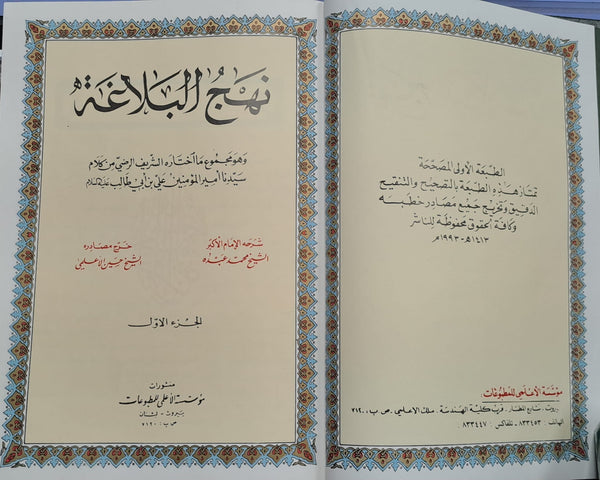 نهج البلاغة
وهو مجموع ما اختاره الشريف الرضي من كلام
سيدنا أمير المؤمنين علي بن أبي طالب عليه السلام
شرحه الإمام الأكبر
الشيخ محمد عبده
خرج مصادره
الشيخ حسين الأعلمي
الجزء الأول
منشورات
مؤسسة الأعلمي للمطبوعات
بيروت - لبنان
ص.ب: ٧١٢٠
الطبعة الأولى المصححة
تمتاز هذه الطبعة بالتصحيح والتنقيح
الدقيق وتخريج جميع مصادر خطبه
وكافة الحقوق محفوظة للناشر
١٤١٣هـ - ١٩٩٣م
مؤسسة الأعلمي للمطبوعات:
بيروت. شارع المطار. قرب كلية الهندسة. ملك الاعلمي. ص.ب: ٧١٢٠
الهاتف: ٨٣٣٤٥٣ - تلفاكس: ٨٣٣٤٤٧